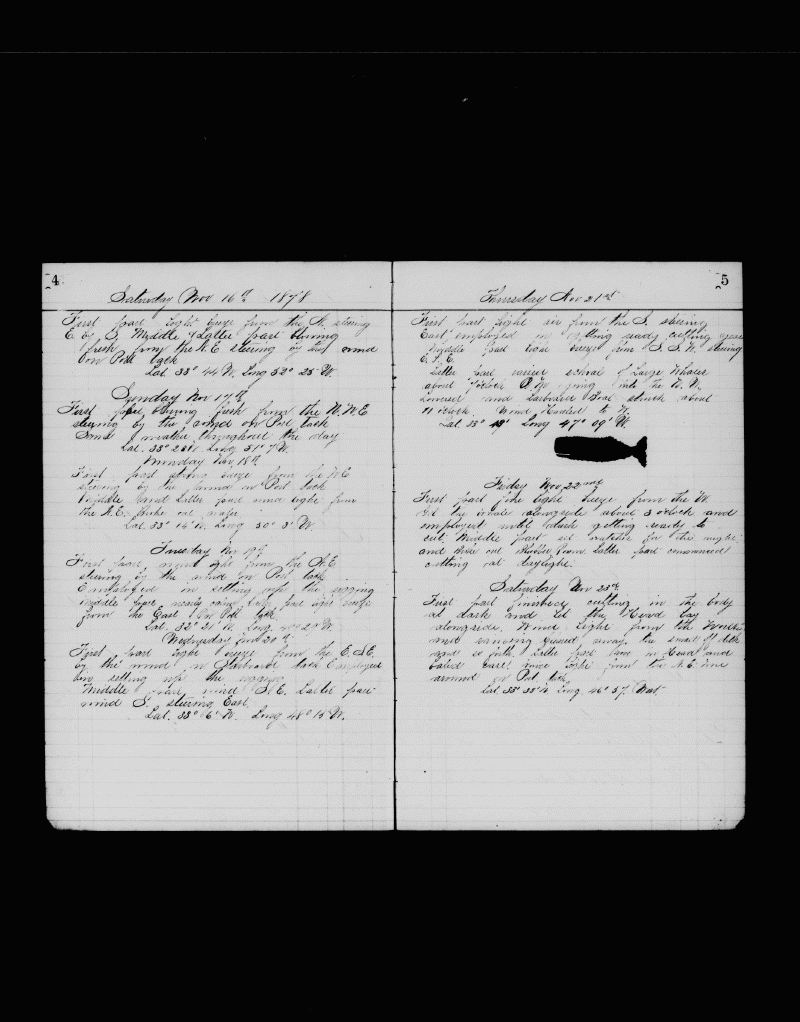 4
Saturday Nov 16th 1878
First part light breeze from the N. steering
E by S. Middle & Latter part blowing
fresh from the N.E steering by the wind
on Port tack
Lat 33° 44 N. Long 52° 25 W.
Sunday Nov 17th
First part blowing fresh from the N.N.E
steering by the wind on Port tack
Same weather throughout the day
Lat. 33° 23 N. Long 51° 7 W.
Monday Nov 18th
First part strong breeze from the N.E
steering by the wind on Port tack
Middle and Latter part wind light from
the N.E. Shook out reefs
Lat 33° 14 N. Long 50° 3 W.
Tuesday Nov 19th
First part wind light from the N.E
steering by the wind on Port tack
Employed in setting up the rigging
middle part nearly calm
from the East on Port tack
Lat. 32° 21 N. Long 49° 20 W.
Wednesday Nov 20th
First part light breeze from the E.S.E.
by the wind on Starboard tack Employed
in setting up the rigging
Middle part wind S.E. Latter part
wind S. steering East.
Lat. 33° 6 N. Long 48° 15 W.
5
Thursday Nov 21st
First part light air from the S. steering
East employed in getting ready cutting gear
Middle part light breeze from S.S.W. steering
E.S.E.
Latter part raised school of Large Whales
about 7 o'clock A.M. going into the N.W.
Lowered and Larboard Boat struck about
11 o'clock. Wind Hauled to W.
Lat 33° Long 47° 09' W.
Friday Nov 22nd
First part fine light breeze from the W.
Got the whale alongside about 3 o'clock and
employed until dark getting ready to
cut Middle part set watches for the night
and Latter part commenced
cutting at daylight.
Saturday Nov 23rd
First part finished cutting in the body
at dark and let the Head lay
alongside. Wind Light from the West
and cleared away the
and so forth. Latter part took in Head and
bailed case. wind light from the N.E.
around on Port tack
Lat 33° 33 N Long 46° 57 West